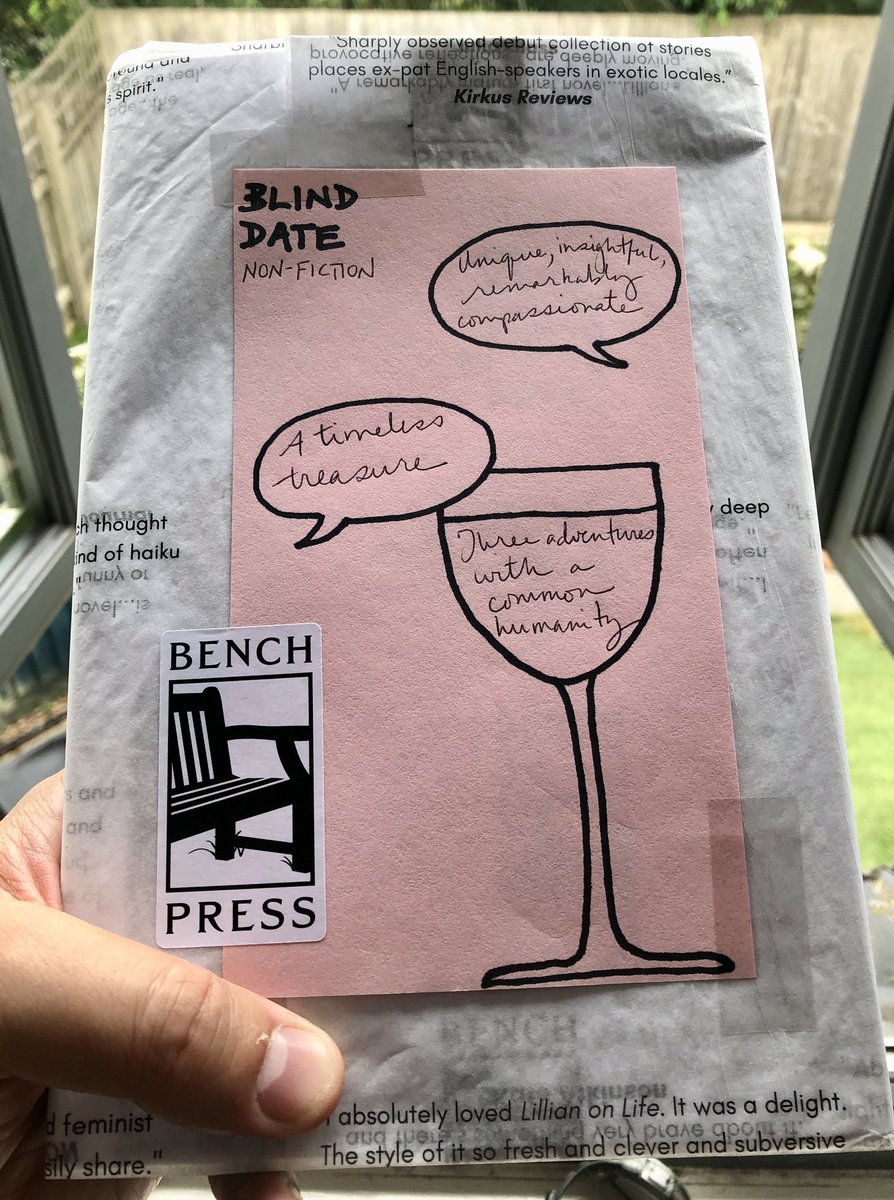 "Sharply observed debut collection of stories
places ex-pat English-speakers in exotic locales."
Kirkus Reviews
and
spirit."
BLIND
DATE
NON-FICTION
Unique, insightful,
remarkably
compassionate
A timeless
treasure
Three adventures
with a
common
humanity
thought
ind of haiku
deep
BENCH
PRESS
d feminist
sily share."
I absolutely loved Lillian on Life. It was a delight.
The style of it so fresh and clever and subversive